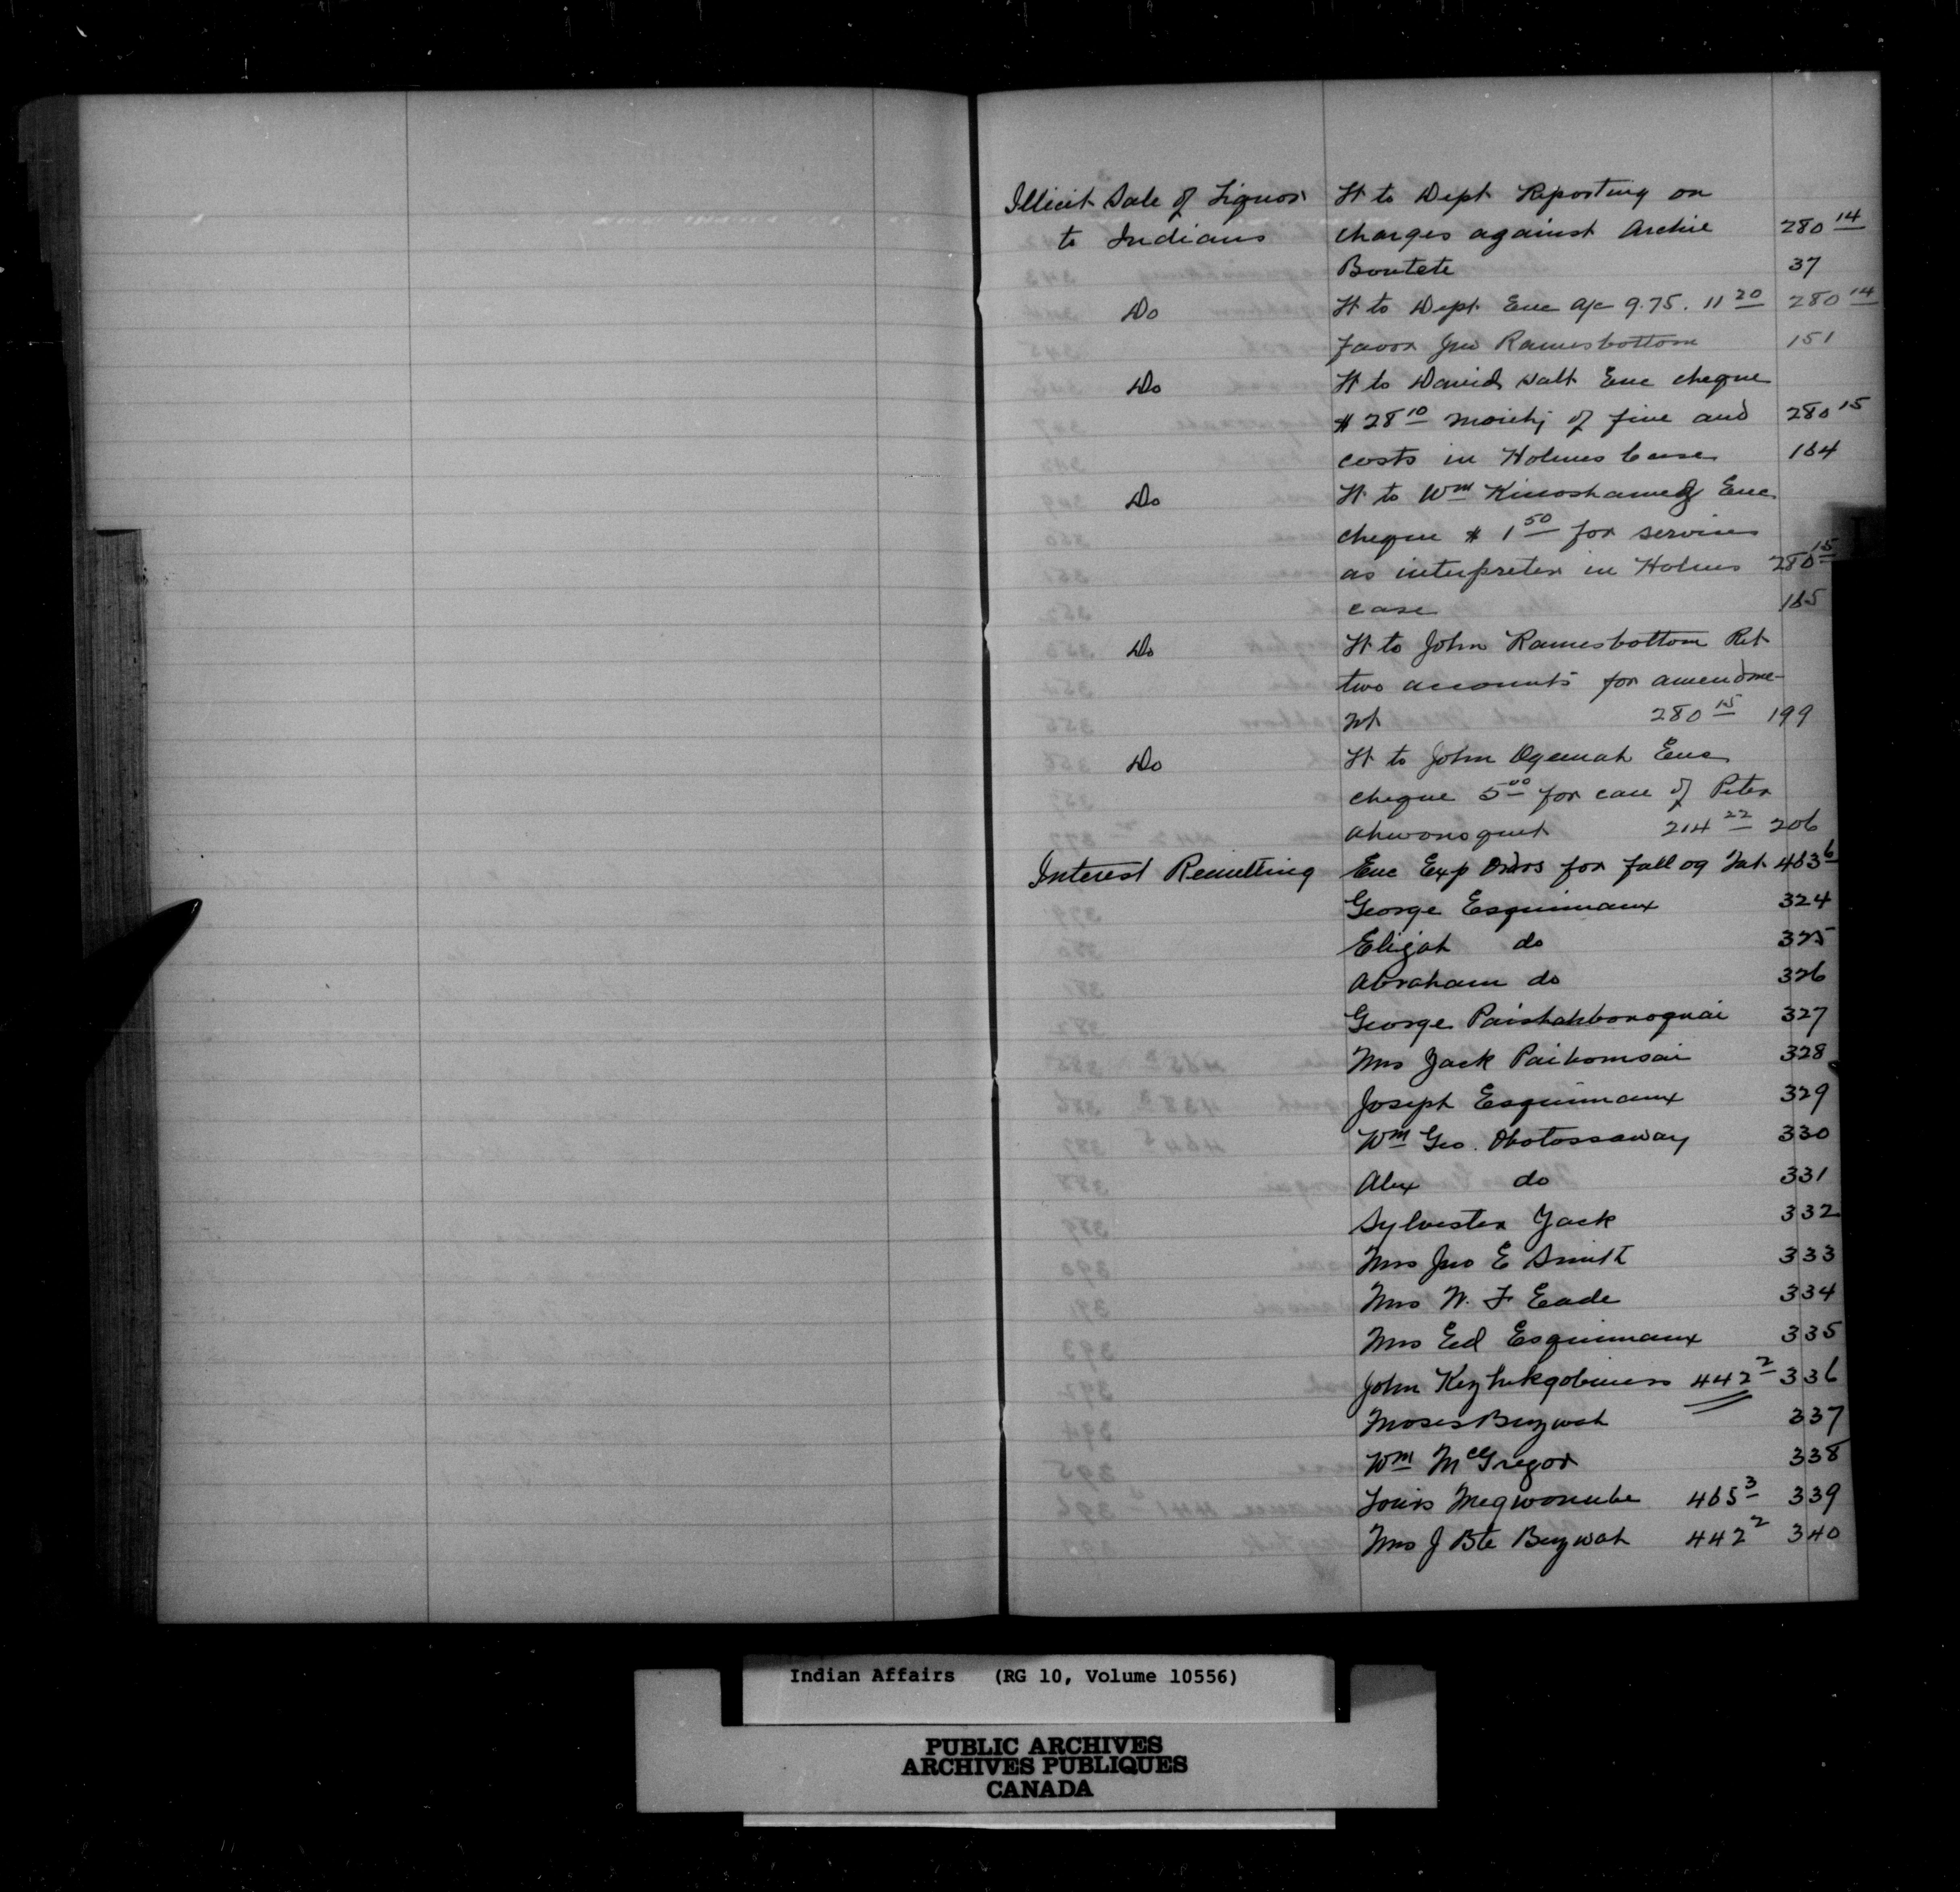 Illicit Sale of Liquor Lt to Dept Reporting on
to Indians charges against Archie 280 14
Boutete 37
Do Lt to Dept Enc a/c 9.75. 11 20 280 14
favor Jno Ramesbottom 151
Do Lt to David Walt Enc cheque
$ 28 10 moiety of fine and 280 15
costs in Holmes Case 164
Do Lt to Wm Kinoshameg Enc
cheque $ 1 50 for services
as interpreter in Holmes 280 15
case 165
Do Lt to John Ramesbottom Ret
two accounts for amendme-
nt 280 15 199
Do Lt to John Ogemah Enc
cheque 5 00 for care of Peter
Ahwonoquet 214 22 206
Interest Remitting Enc Exp Ordrs for fall 09 Int 463 6
George Esquimaux 324
Elijah do 325
Abraham do 326
George Paishahbonoquai 327
Mrs Jack Paibomsai 328
Joseph Esquimaux 329
Wm Geo. Obotossaway 330
Alex do 331
Sylvester Jack 332
Mrs Jno E Smith 333
Mrs W. F. Eade 334
Mrs Ed Esquimaux 335
John Kezhikgobiness 442 2 336
Moses Buzwah 337
Wm McGregor 338
Louis Megwonube 465 3 339
Mrs J Bte Buzwah 442 2 340
Indian Affairs (RG 10, Volume 10556)
PUBLIC ARCHIVES
ARCHIVES PUBLIQUES
CANADA